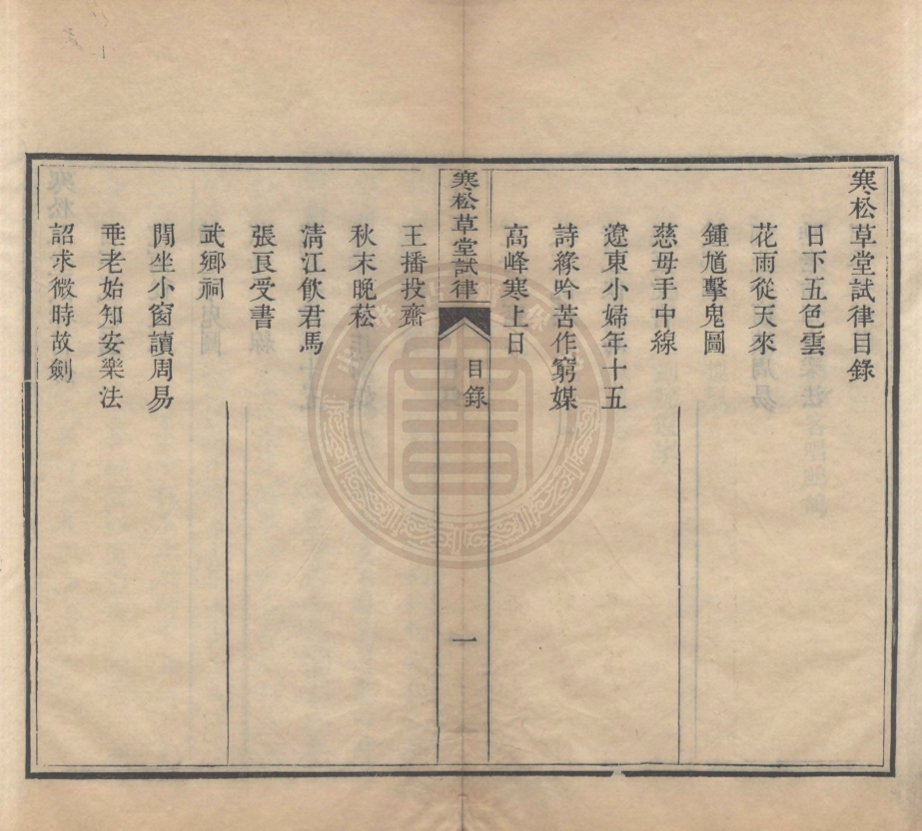 寒松草堂試律目錄
日下五色雲
花雨從天來
鍾馗擊鬼圖
慈母手中線
遼東小婦年十五
詩緣吟苦作窮媒
高峰寒上日
寒松草堂試律
目錄
一
王播投齋
秋末晚菘
清江飲君馬
張良受書
武鄉祠
閒坐小窗讀周易
垂老始知安樂法
詔求微時故劍